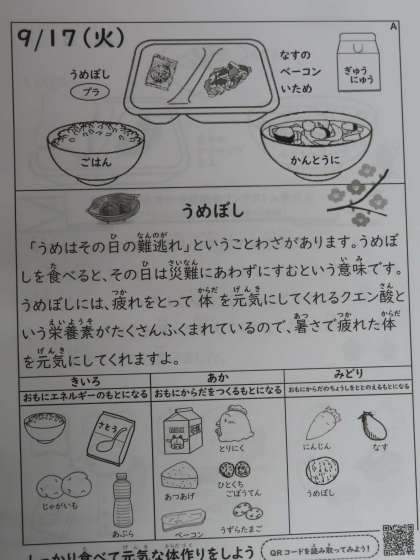 A
9/17(火)
うめぼし
プラ
なすの
ベーコン
いため
ぎゅう
にゅう
ごはん
かんとうに
うめぼし
「うめはその日の難逃れ」ということわざがあります。うめぼ
しを食べると、その日は災難にあわずにすむという意味です。
うめぼしには、疲れをとって体を元気にしてくれるクエン酸と
いう栄養素がたくさんふくまれているので、暑さで疲れた体
を元気にしてくれますよ。
きいろ
おもにエネルギーのもとになる
あか
おもにからだをつくるもとになる
みどり
おもにからだのちょうしをととのえるもとになる
さとう
とりにく
にんじん
なす
じゃがいも
あつあげ
ひとくち
ごぼうてん
うめぼし
あぶら
ベーコン
うずらたまご
しっかり食べて元気な体作りをしよう
QRコードを読み取ってみよう!